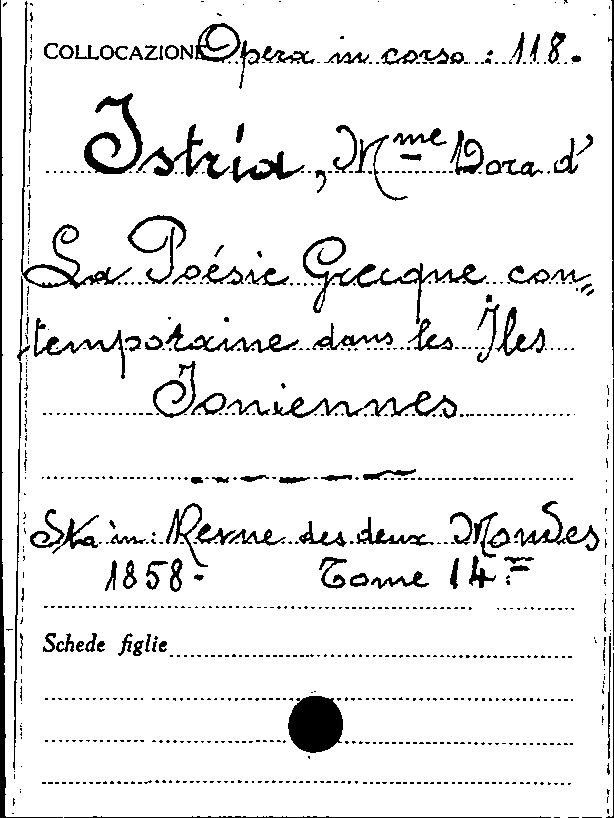 COLLOCAZIONE Opera in corso : 118.
Istria, Mme Dora d'
La Poésie Grecque con=
temporaine dans les Îles
Ioniennes
Sta in: Revue des deux Mondes
1858- Tome 14.=
Schede figlie